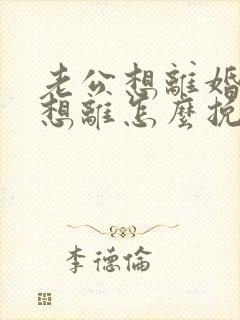 老公想離婚
想離怎麼挽
李德倫